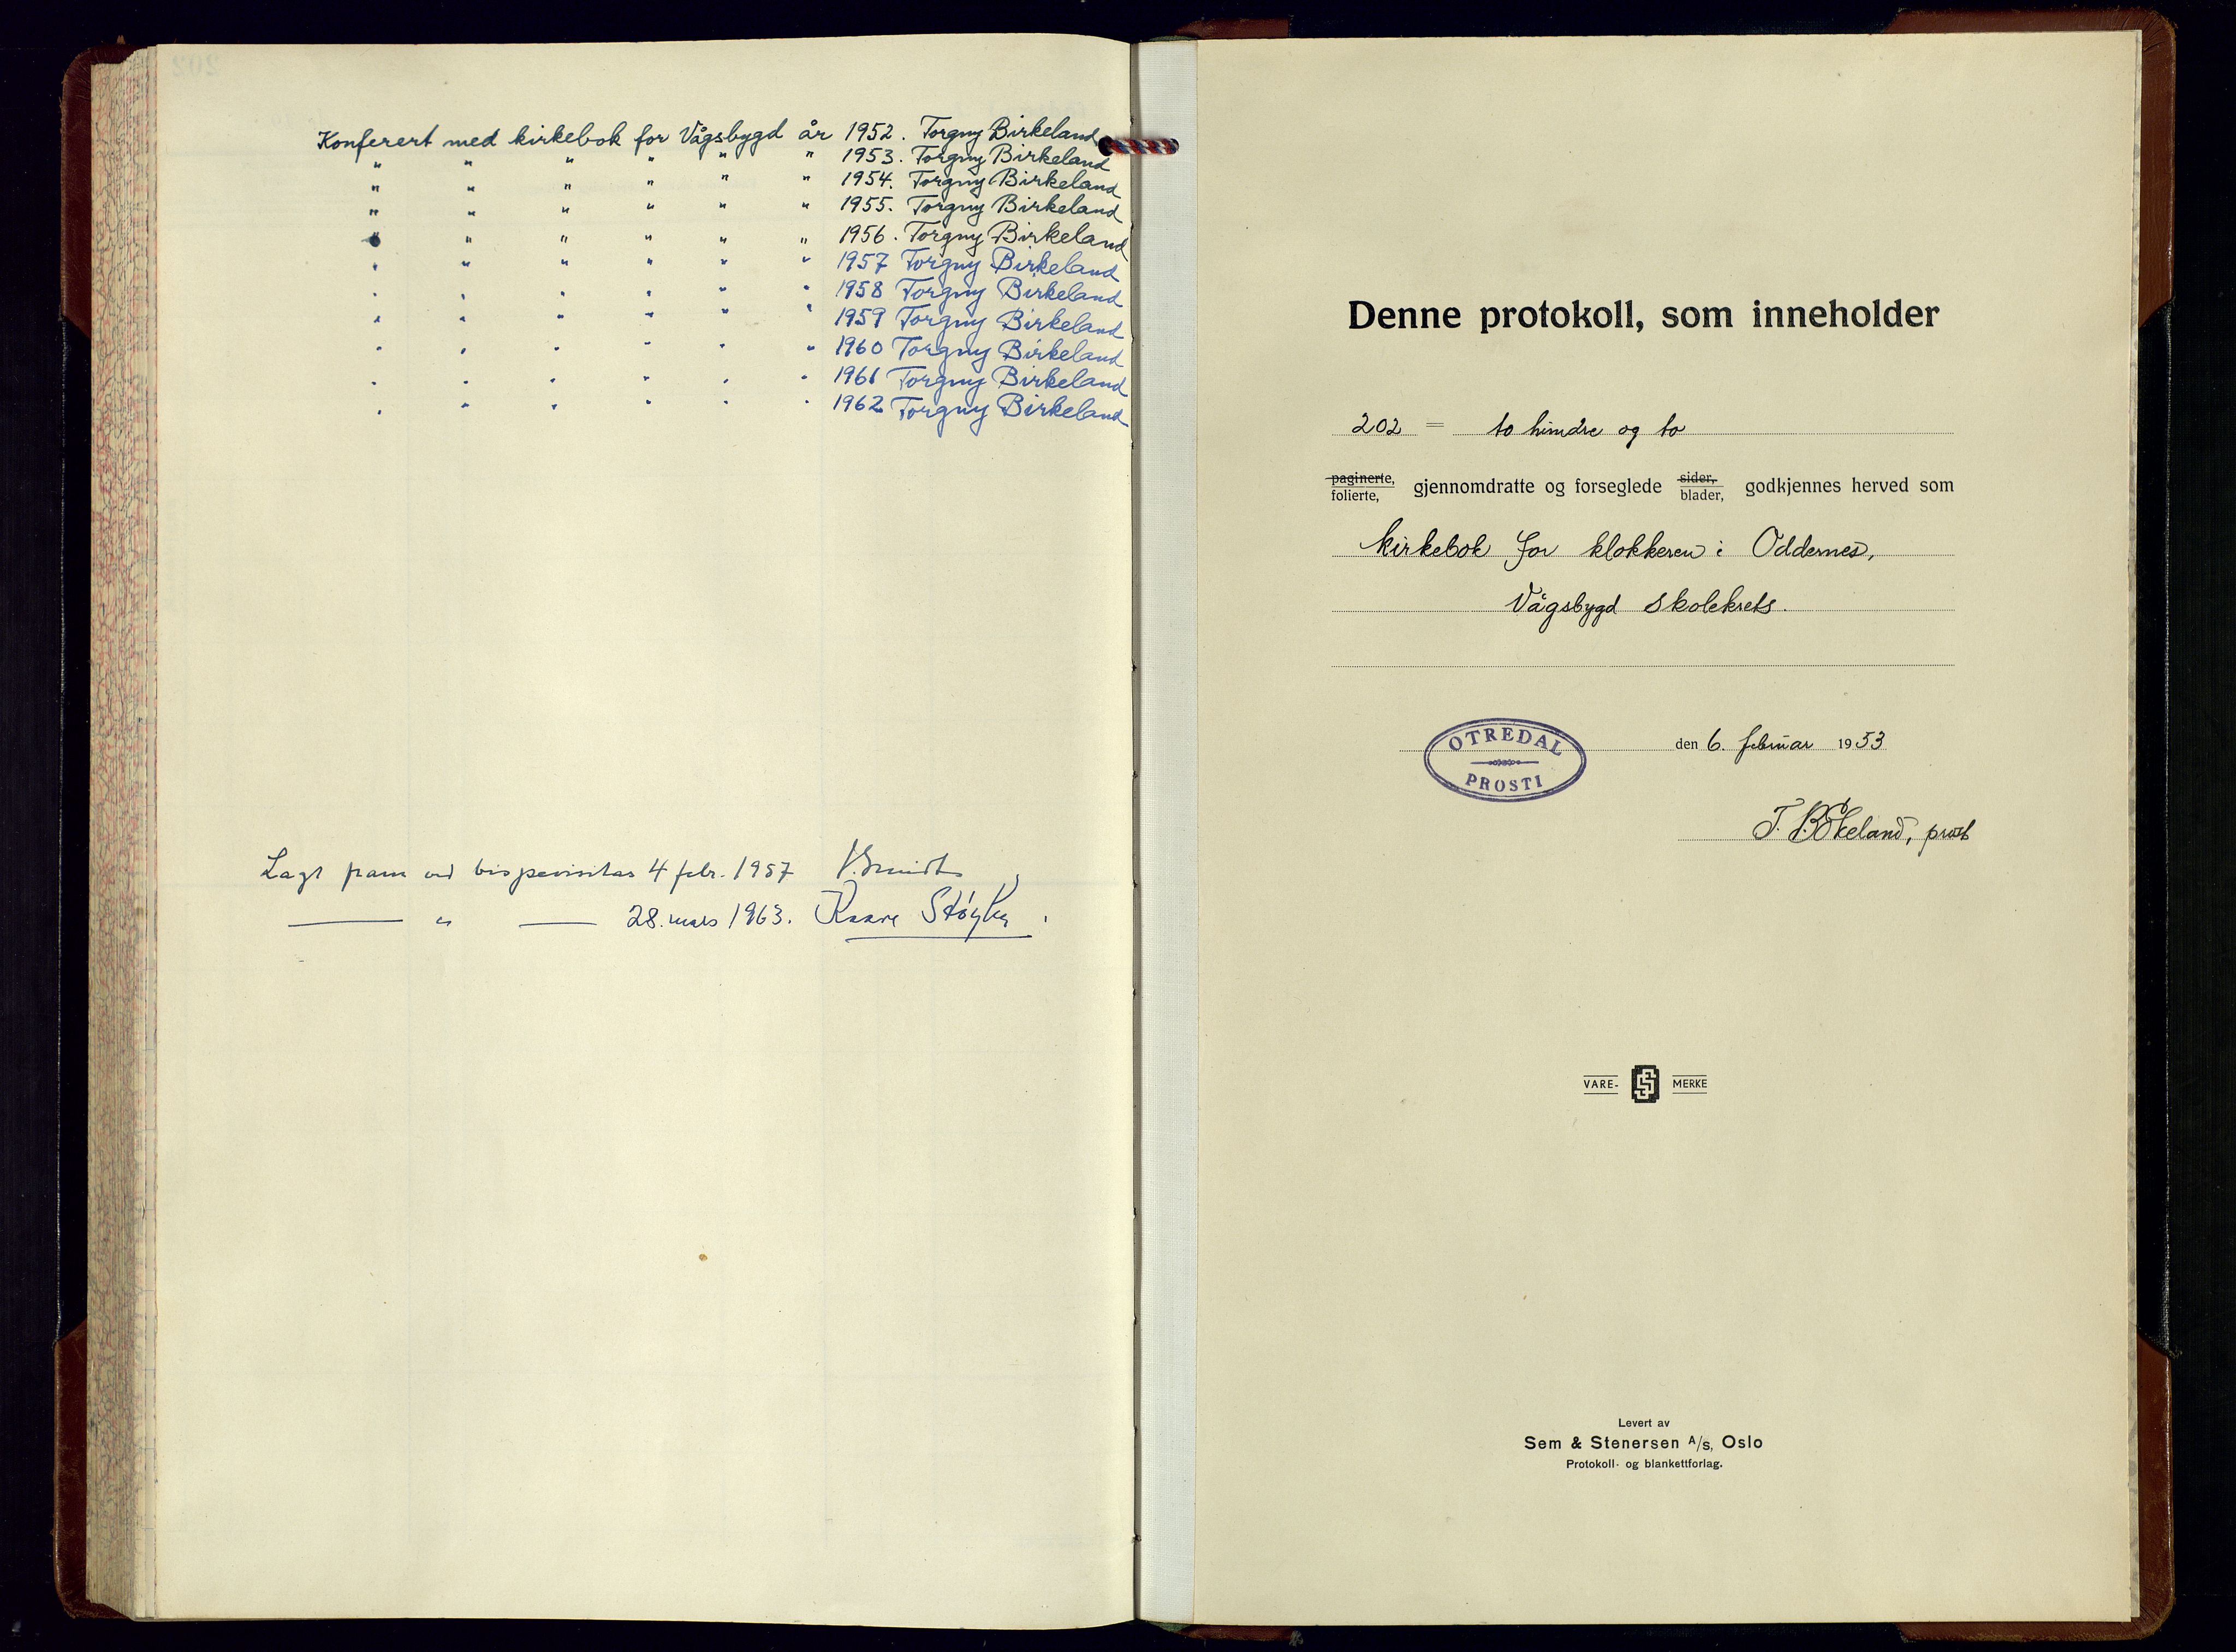 Konferert med kirkebok for Vågsbygd år 1952. Torgny Birkeland
" " " " " " 1953. Torgny Birkeland
" " " " " " 1954. Torgny Birkeland
" " " " " " 1955. Torgny Birkeland
" " " " " " 1956. Torgny Birkeland
" " " " " " 1957 Torgny Birkeland
" " " " " " 1958 Torgny Birkeland
" " " " " " 1959 Torgny Birkeland
" " " " " " 1960 Torgny Birkeland
" " " " " " 1961 Torgny Birkeland
" " " " " " 1962 Torgny Birkeland
Lagt fram ved bispevisitas 4 febr. 1957 J. Smidt
— " — 28. mars 1963. Kaare Støylen.
Denne protokoll, som inneholder
202 = to hundre og to
paginerte, folierte, gjennomdratte og forseglede sider, blader, godkjennes herved som
kirkebok for klokkeren i Oddernes,
Vågsbygd skolekrets.
OTREDAL
PROSTI
den 6. februar 1953
T. Bökeland, prost
VARE- S MERKE
Levert av
Sem & Stenersen A/s, Oslo
Protokoll- og blankettforlag.